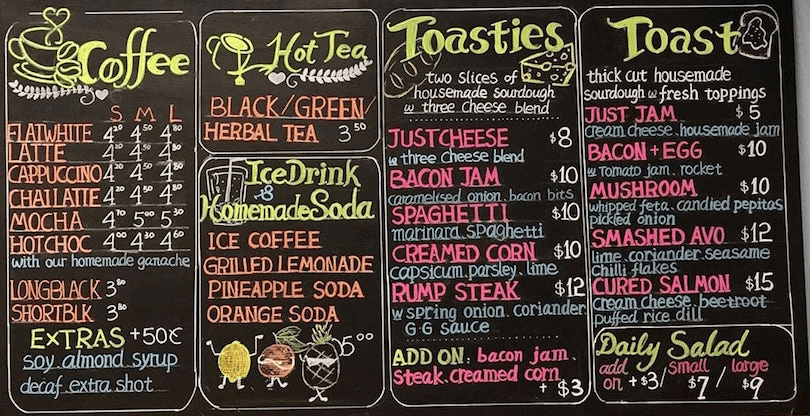 Coffee
S M L
FLATWHITE 4²⁰ 4⁵⁰ 4⁸⁰
LATTE 4²⁰ 4⁵⁰ 4⁸⁰
CAPPUCCINO 4²⁰ 4⁵⁰ 4⁸⁰
CHAI LATTE 4²⁰ 4⁵⁰ 4⁸⁰
MOCHA 4⁷⁰ 5⁰⁰ 5³⁰
HOT CHOC 4⁰⁰ 4³⁰ 4⁶⁰
with our homemade ganache
LONGBLACK 3⁸⁰
SHORTBLK 3⁸⁰
EXTRAS +50¢
soy.almond syrup
decaf.extra shot
Hot Tea
BLACK/GREEN/
HERBAL TEA 3⁵⁰
Ice Drink
&
Homemade Soda
ICE COFFEE
GRILLED LEMONADE
PINEAPPLE SODA
ORANGE SODA
$5.00
Toasties
two slices of
housemade sourdough
w three cheese blend
JUST CHEESE $8
w three cheese blend
BACON JAM $10
caramelised onion. bacon bits
SPAGHETTI $10
marinara spaghetti
CREAMED CORN $10
capsicum.parsley.lime
RUMP STEAK $12
w spring onion. coriander.
G.G sauce
ADD ON. bacon jam.
steak.creamed corn
+ $3
Toast
thick cut housemade
sourdough w fresh toppings
JUST JAM $5
cream cheese.housemade jam
BACON + EGG $10
w tomato jam. rocket
MUSHROOM $10
whipped feta. candied pepitas
pickled onion
SMASHED AVO $12
lime.coriander.seasame
chilli flakes
CURED SALMON $15
cream cheese. beetroot
puffed rice.dill
Daily Salad
add on +$3/ small $7/ large $9